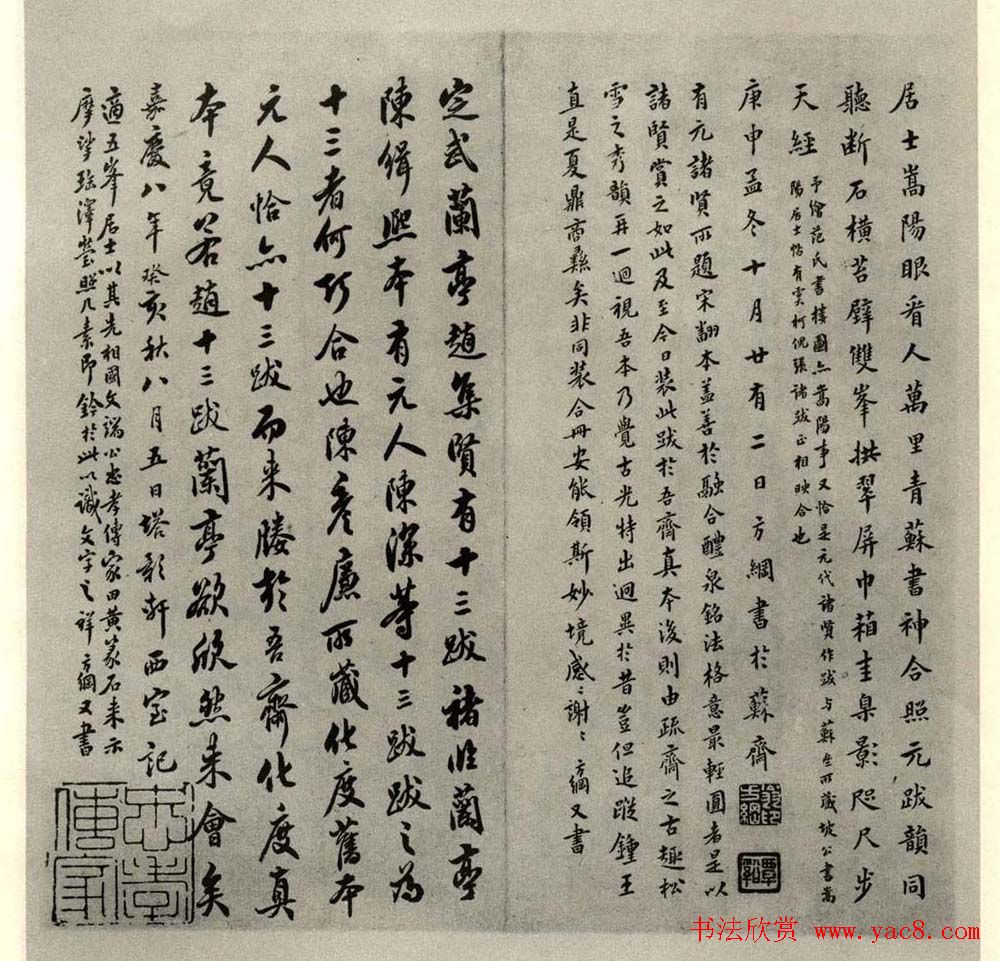 居士嵩陽眼看人萬里青蘇書神合照元跋韻同
聽斷石橫苔壁雙峯拱翠屏巾箱圭臬影咫尺步
天經
予繪范氏書樓圖亦嵩陽事又恰是元代諸賢作跋与蘇齋所藏坡公書嵩
陽居士帖有雲柯倪張諸跋正相映合也
庚申孟冬十月廿有二日方綱書於蘇齋
有元諸賢所題宋翻本蓋善於融合醴泉銘法格意最輕圓者是以
諸賢賞之如此及至今日装此跋於吾齋真本後則由疏齋之古趣松
雪之秀韻再一迴視吾本乃覺古光特出迥異於昔豈但追蹤鍾王
直是夏鼎商彝矣非同装合冊安能領斯妙境感感謝謝方綱又書
定武蘭亭趙集賢有十三跋褚臨蘭亭
陳緝熙本有元人陳深等十三跋跋之為
十三者何巧合也陳彦廉所藏化度舊本
元人恰亦十三跋而来媵於吾齋化度真
本竟若趙十三跋蘭亭欲欣然来會矣
嘉慶八年癸亥秋八月五日塔影軒西室記
適五峯居士以其先相國文端公忠孝傳家田黄篆石来示
摩挲珍澤瑩照几素即鈐於此以識文字之祥方綱又書
忠孝
傳家
书法欣赏 www.yac8.com